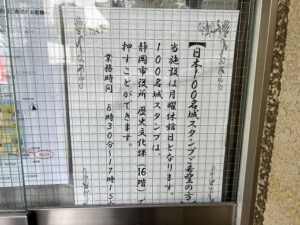 【日本100名城スタンプご希望の方】
当施設は月曜休館日となります。
100名城スタンプは、
静岡市役所 歴史文化課（16階）で
押すことができます。
業務時間 8時30分~17時15分